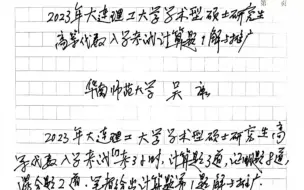 2023年大连理工大学学术型硕士研究生
高等代数入学考试计算题1解与推广
华南师范大学 吴
2023年大连理工大学学术型硕士研究生高
等代数入学考试 3小时,计算题3道,证明题
混合题2道,笔者给出计算题第1题解与推